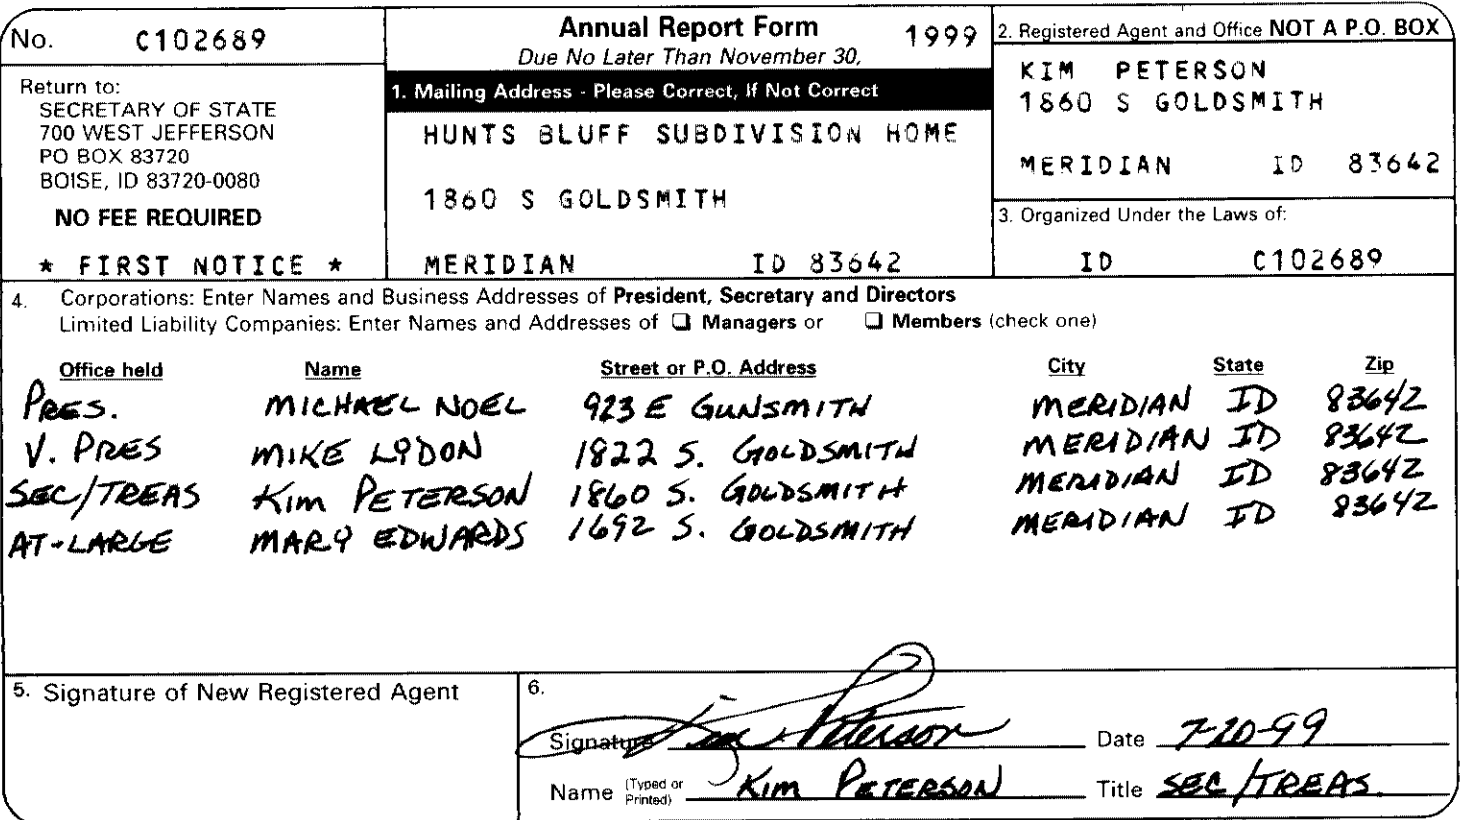 No. C102689
Return to:
SECRETARY OF STATE
700 WEST JEFFERSON
PO BOX 83720
BOISE, ID 83720-0080
NO FEE REQUIRED
* FIRST NOTICE *
Annual Report Form 1999
Due No Later Than November 30,
1. Mailing Address - Please Correct, If Not Correct
HUNTS BLUFF SUBDIVISION HOME
1860 S GOLDSMITH
MERIDIAN ID 83642
2. Registered Agent and Office NOT A P.O. BOX
KIM PETERSON
1860 S GOLDSMITH
MERIDIAN ID 83642
3. Organized Under the Laws of:
ID C102689
4. Corporations: Enter Names and Business Addresses of President, Secretary and Directors
Limited Liability Companies: Enter Names and Addresses of ❑ Managers or ❑ Members (check one)
Office held Name Street or P.O. Address City State Zip
PRES. MICHAEL NOEL 923 E GUNSMITH MERIDIAN ID 83642
V. PRES MIKE LYDON 1822 S. GOLDSMITH MERIDIAN ID 83642
SEC/TREAS KIM PETERSON 1860 S. GOLDSMITH MERIDIAN ID 83642
AT-LARGE MARY EDWARDS 1692 S. GOLDSMITH MERIDIAN ID 83642
5. Signature of New Registered Agent
6.
Signature Kim Peterson Date 7-20-99
Name (Typed or Printed) KIM PETERSON Title SEC/TREAS.